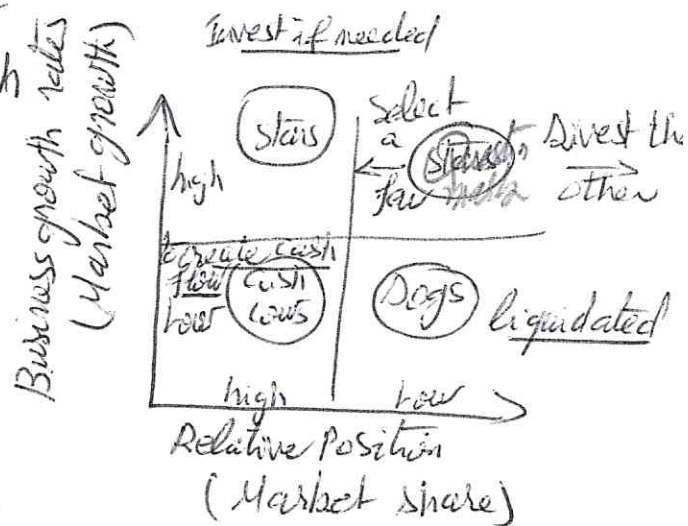 Invest if needed
Business growth rates
(Market growth)
stars
Select
a
few
Divest the
other
high
to create cash
flow
Low
Cash
Cows
Dogs
liquidated
high Low
Relative Position
(Market share)